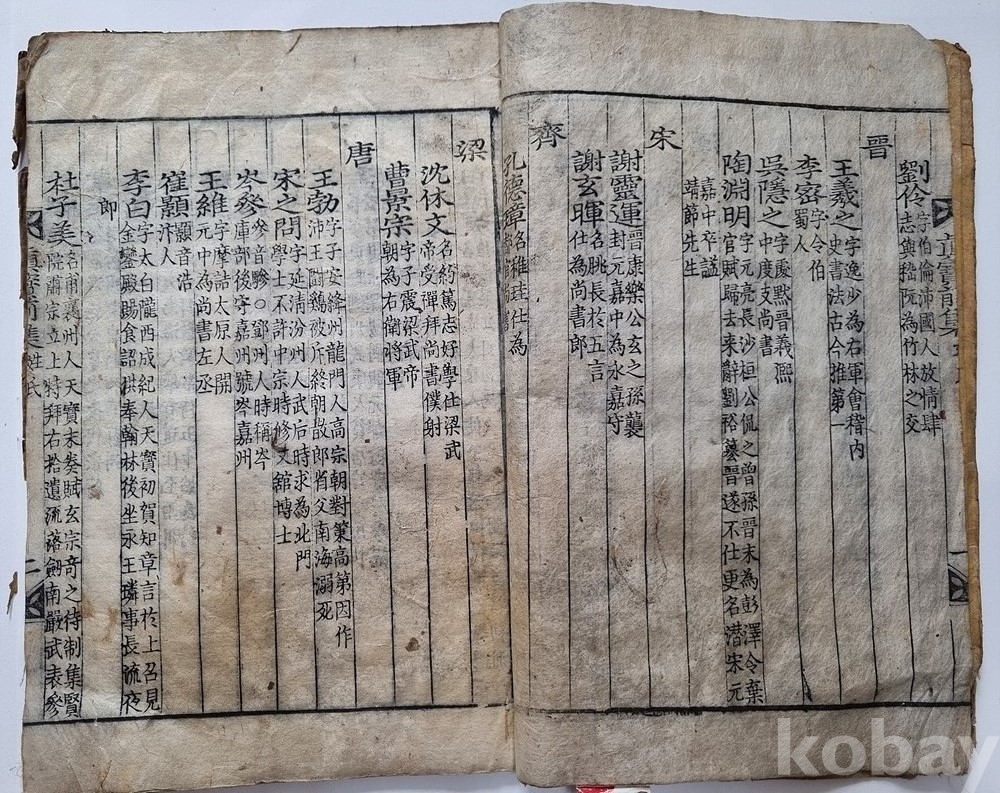 劉伶 字伯倫沛國人放情肆
志與嵇阮為竹林之交
晉
王羲之 字逸少為右軍會稽內
史書法古今推第一
李密 字令伯
蜀人
吳隱之 字處黙晉義熙
中度支尚書
陶淵明 字元亮長沙桓公侃之曾孫晉末為彭澤令棄
官賦歸去来辭劉裕簒晉遂不仕更名潛宋元
嘉中卒諡
靖節先生
宋
謝靈運 晉康樂公玄之孫襲
封元嘉中為永嘉守
謝玄暉 名朓長於五言
仕為尚書郎
齊
孔德璋 名稚珪仕為
梁
沈休文 名約篤志好學仕梁武
帝受禪拜尚書僕射
曹景宗 字子震梁武帝
朝為右衛將軍
唐
王勃 字子安絳州龍門人高宗朝對策高第因作
沛王鬪鷄檄斥終朝散郎省父南海溺死
宋之問 字延清汾州人武后時求為北門
學士不許中宗時修文舘博士
岑參 參音驂○鄧州人時稱岑
庫部後守嘉州號岑嘉州
王維 字摩詰太原人開
元中為尚書左丞
崔顥 顥音浩
汴人
李白 字太白隴西成紀人天寳初賀知章言於上召見
金鑾殿賜食詔供奉翰林後坐永王璘事長流夜
郎
杜子美 名甫襄州人天寳末奏賦玄宗奇之待制集賢
院肅宗立上特拜右拾遺流落劒南嚴武表參
姓氏
二
kobay